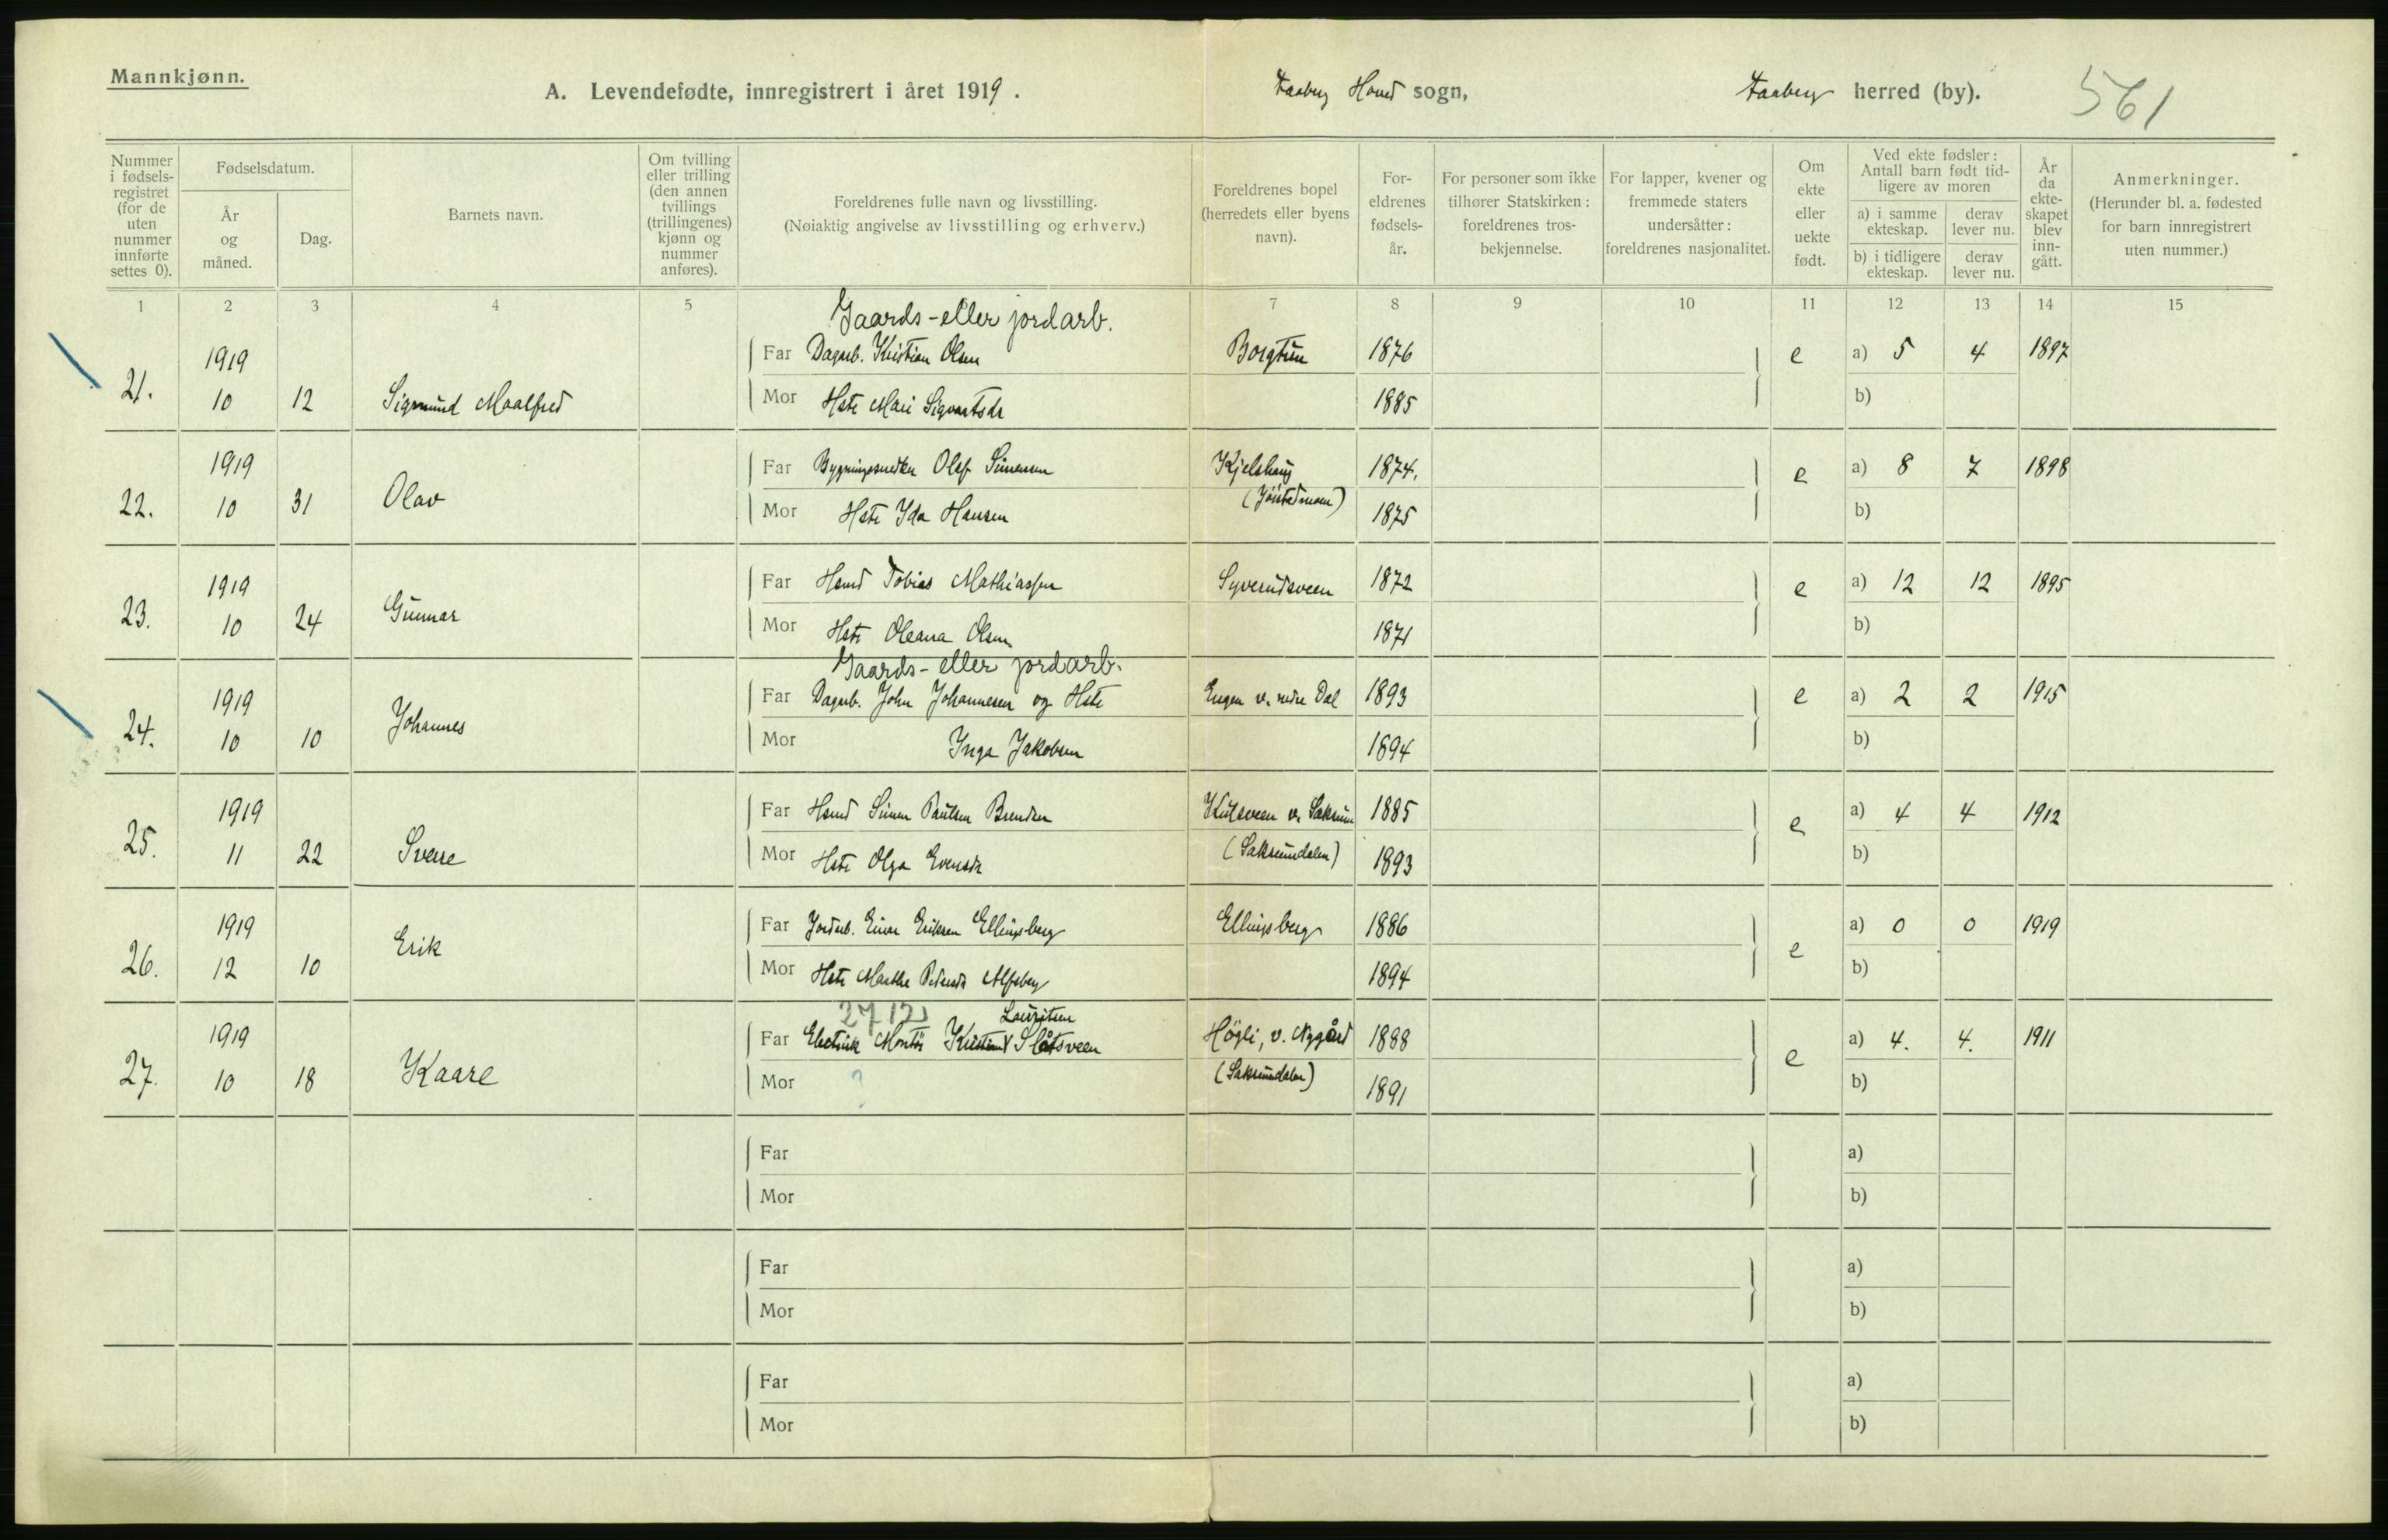 Mannkjønn.
A. Levendefødte, innregistrert i året 1919.
Faaberg Hoved sogn,
Faaberg herred (by).
561
Nummer i fødsels-registret (for de uten nummer innførte settes 0).
Fødselsdatum.
År og måned.
Dag.
Barnets navn.
Om tvilling eller trilling (den annen tvillings (trillingenes) kjønn og nummer anføres).
Foreldrenes fulle navn og livsstilling.
(Nøiaktig angivelse av livsstilling og erhverv.)
Foreldrenes bopel (herredets eller byens navn).
For-eldrenes fødsels-år.
For personer som ikke tilhører Statskirken: foreldrenes tros-bekjennelse.
For lapper, kvener og fremmede staters undersåtter: foreldrenes nasjonalitet.
Om ekte eller uekte født.
Ved ekte fødsler: Antall barn født tid-ligere av moren
a) i samme ekteskap.
derav lever nu.
b) i tidligere ekteskap.
derav lever nu.
År da ekte-skapet blev inn-gått.
Anmerkninger.
(Herunder bl. a. fødested for barn innregistrert uten nummer.)
1 2 3 4 5 7 8 9 10 11 12 13 14 15
Gaards- eller jordarb.
1919 Far Dagarb. Kristian Olsen Borgtun 1876 e a) 5 4 1897
21. 10 12 Sigmund Maalfred Mor Hste Mari Sigvartsdr 1885 b)
1919 Far Bygningssnedker Olaf Simensen Kjelshaug 1874. e a) 8 7 1898
22. 10 31 Olav Mor Hste Ida Hansen (Jöistadmoen) 1875 b)
1919 Far Hsmd Tobias Mathiassen Syverudsveen 1872 e a) 12 12 1895
23. 10 24 Gunnar Mor Hste Oleana Olsen 1871 b)
Gaards- eller jordarb.
1919 Far Dagarb. John Johannesen og Hste Engen v. nedre Dal 1893 e a) 2 2 1915
24. 10 10 Johannes Mor Inga Jakobsen 1894 b)
1919 Far Hsmd Simen Paulsen Brenden v. Saksum 1885 e a) 4 4 1912
25. 11 22 Sverre Mor Hste Olga Evensdr (Saksumdalen) 1893 b)
1919 Far Jordarb. Einar Eriksen Ellingsberg Ellingsberg 1886 e a) 0 0 1919
26. 12 10 Erik Mor Hste Marthe Pedersdr 1894 b)
Lauritsen
1919 Far Electrisk Montør Kristian Slåtsveen Högli, v. Nygård 1888 e a) 4. 4. 1911
27. 10 18 Kaare Mor ? (Saksumdalen) 1891 b)
Far a)
Mor b)
Far a)
Mor b)
Far a)
Mor b)